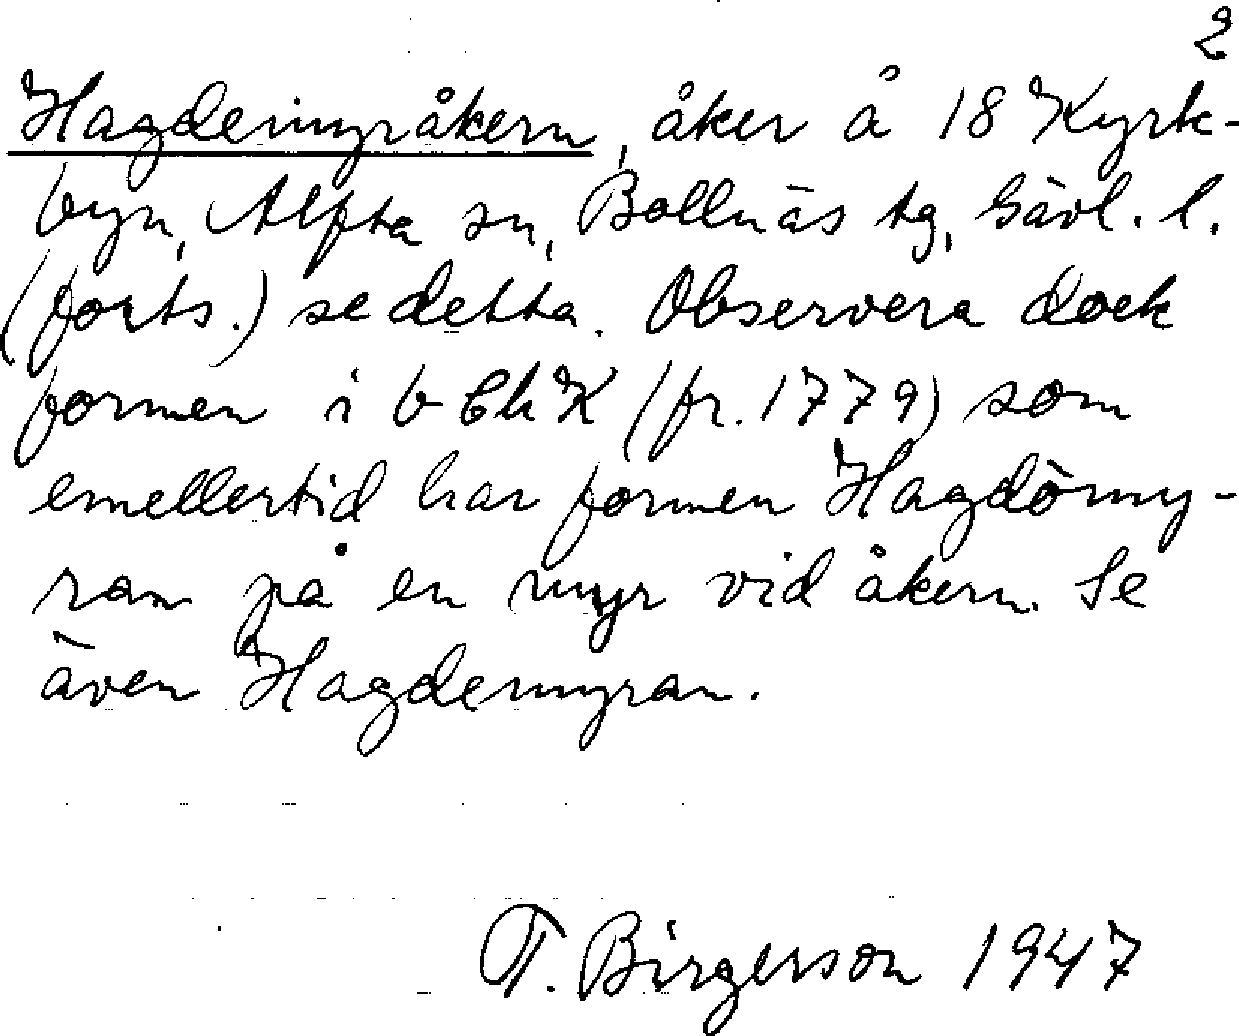 2
Hagdemyråkern, åker å 18 Kyrk-
byn, Alfta sn, Bollnäs tg, Gävl. l.
(forts.) se detta. Observera dock
formen i b ChK (fr. 1779) som
emellertid har formen Hagdömy-
ran på en myr vid åkern. Se
även Hagdemyran.
T. Birgerson 1947